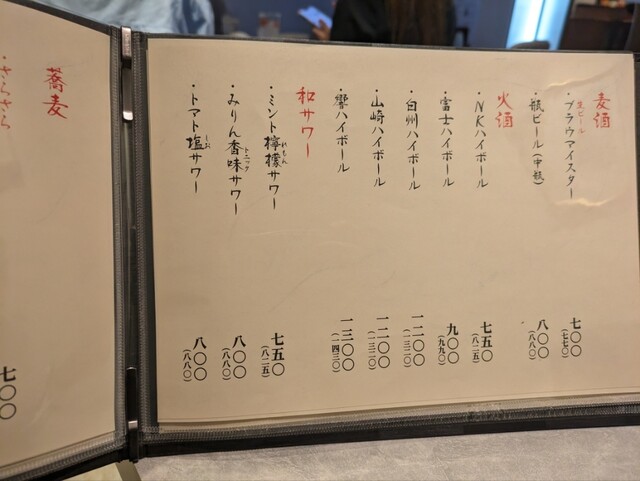 麦酒
・生ビール ブラウマイスター 七〇〇 (七七〇)
・瓶ビール(中瓶) 八〇〇 (八八〇)
火酒
・NKハイボール 七五〇 (八二五)
・富士ハイボール 九〇〇 (九九〇)
・白州ハイボール 一二〇〇 (一三二〇)
・山崎ハイボール 一二〇〇 (一三二〇)
・響ハイボール 一三〇〇 (一四三〇)
和サワー
・ミント檸檬サワー 七五〇 (八二五)
れもん
・みりん香味サワー 八〇〇 (八八〇)
トニック
・トマト塩サワー 八〇〇 (八八〇)
しお
蕎麦
・さらさら
七〇〇